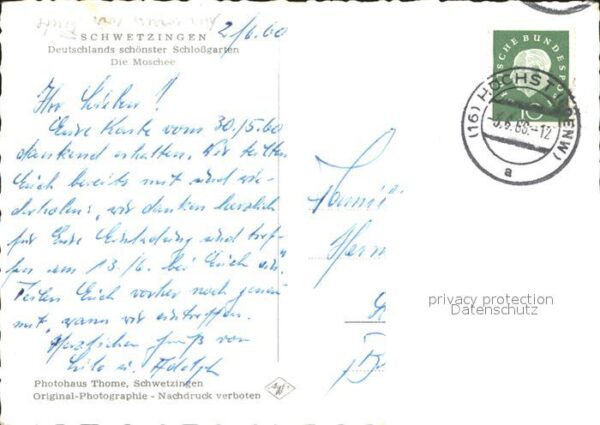 SCHWETZINGEN
Deutschlands schönster Schloßgarten
Die Moschee
2/6.60
Ihr Lieben!
Eure Karte vom 30./5.60
dankend erhalten. Wir teilten
Euch bereits mit und wie-
derholen: „wir danken herzlich
für Eure Einladung und tref-
fen am 13./6. bei Euch ein."
Teilen Euch vorher noch genau
mit, wann wir eintreffen.
Herzlichen Gruß von
u. Adolph
Photohaus Thome, Schwetzingen
Original-Photographie - Nachdruck verboten
DEUTSCHE BUNDESPOST
10
(16) HÖCHST (ODENW)
-3.6.60.-12
a
Famili
Herm
privacy protection
Datenschutz